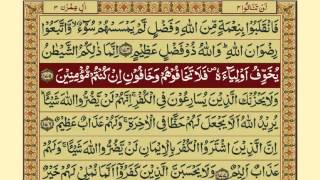 لن تنالوا ٤ اٰل عمرٰن ٣
فَانْقَلَبُوْا بِنِعْمَةٍ مِّنَ اللّٰهِ وَفَضْلٍ لَّمْ يَمْسَسْهُمْ سُوْٓءٌ ۙ وَّاتَّبَعُوْا
رِضْوَانَ اللّٰهِ ؕ وَاللّٰهُ ذُوْ فَضْلٍ عَظِيْمٍ ﴿۱۷۴﴾ اِنَّمَا ذٰلِكُمُ الشَّيْطٰنُ
يُخَوِّفُ اَوْلِيَآءَهٗ ۪ فَلَا تَخَافُوْهُمْ وَخَافُوْنِ اِنْ كُنْتُمْ مُّؤْمِنِيْنَ ﴿۱۷۵﴾
وَلَا يَحْزُنْكَ الَّذِيْنَ يُسَارِعُوْنَ فِي الْكُفْرِ ۚ اِنَّهُمْ لَنْ يَّضُرُّوا اللّٰهَ شَيْـًٔا ؕ
يُرِيْدُ اللّٰهُ اَلَّا يَجْعَلَ لَهُمْ حَظًّا فِي الْاٰخِرَةِ ۚ وَلَهُمْ عَذَابٌ عَظِيْمٌ ﴿۱۷۶﴾
اِنَّ الَّذِيْنَ اشْتَرَوُا الْكُفْرَ بِالْاِيْمَانِ لَنْ يَّضُرُّوا اللّٰهَ شَيْـًٔا ۚ وَلَهُمْ
عَذَابٌ اَلِيْمٌ ﴿۱۷۷﴾ وَلَا يَحْسَبَنَّ الَّذِيْنَ كَفَرُوْٓا اَنَّمَا نُمْلِيْ لَهُمْ خَيْرٌ